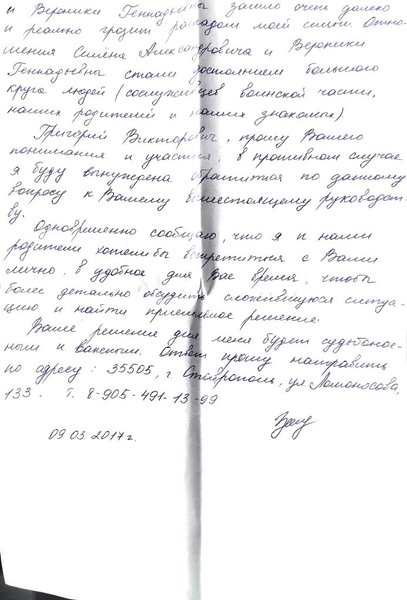 и Вероники Геннадьевны зашло очень далеко
и реально грозит распадом моей семьи. Отно-
шения Семёна Александровича и Вероники
Геннадьевны стали достоянием большого
круга людей (сослуживцев воинской части,
наших родителей и наших знакомых)
Григорий Викторович, прошу Вашего
понимания и участия, в противном случае
я буду вынуждена обратиться по данному
вопросу к Вашему вышестоящему руководст-
ву.
Одновременно сообщаю, что я и наши
родители хотели бы встретиться с Вами
лично, в удобное для Вас время, чтобы
более детально обсудить сложившуюся ситуа-
цию и найти приемлемое решение.
Ваше решение для меня будет судьбонос-
ным и важным. Ответ прошу направить
по адресу: 35505, г. Ставрополь, ул. Ломоносова,
133. т. 8-905-491-13-99
09.03.2017г.